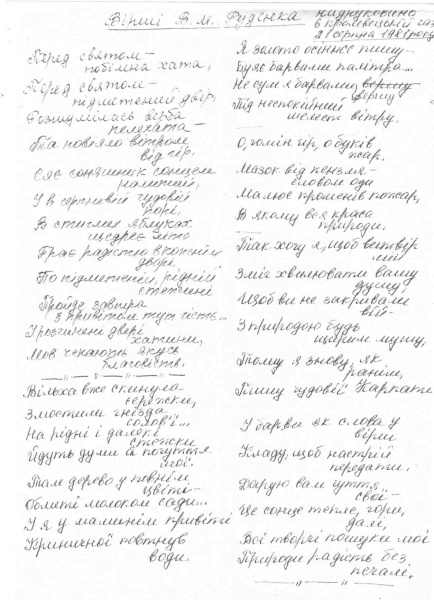 Вірші В. М. Руденка
надруковано
в кролевецькій газ
21 серпня 1981 року
Перед святом —
побілена хата,
Перед святом —
підметений двір,
Розшумілась верба
пелехата —
Та повіяло вітром
від гір.
Сяє соняшник сонцем
налитий,
У в серпневій чудовій
порі,
В стиглих яблуках
щедреє літо
Грає радістю в кожнім
дворі.
По підметеній, рідній
стежині
Пройде завтра
з привітом тут гість...
І розчинені двері
хатини,
Мов чекають якусь
благовість.
Вільха вже скинула
сережки,
Змостили гнізда
солов'ї...
На рідні і далекі
стежки
Йдуть думи й почуття
мої.
Там дерево у повнім
цвіті —
Облиті молоком сади...
У я у маминім привіті
Криничної ковтнув
води.
Я золото осіннє пишу —
Буяє барвами палітра...
Не сум я барвами
вершу
Під неспокійний
шелест вітру.
О, гомін гір, о буків
жар.
Мазок від пензля —
словом оди
Малює променів пожар,
В якому вся краса
природи.
Так хочу я, щоб
мій
Зміг хвилювати вашу
душу,
Щоб ви не закривали
вій —
З природою будь
щирим мушу,
Тому я знову, як
раніш,
Пишу чудовії Карпати
У барви як слова у
вірш
Кладу, щоб настрій
передати.
Дарую вам чуття
свої —
Це сонце тепле, гори,
далі,
Всі творчі пошуки мої
Природи радість без
печалі.